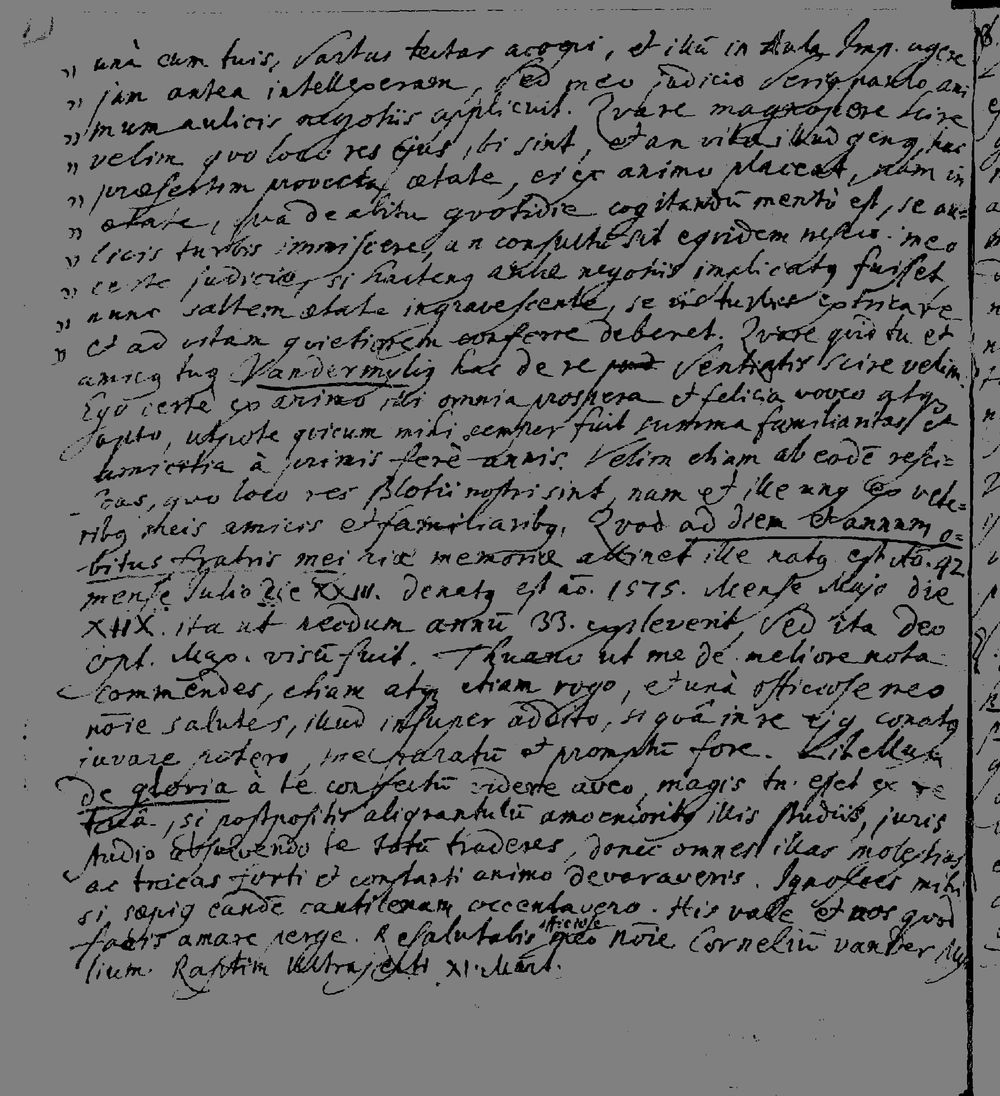 " unà cum tuis, sartus tectus acoqui, et illū in Aula Imp. agere
" jam antea intellexeram, sed meo judicio seriq paulo ani
" mum aulicis negotiis applicuit. Qvare magnopere scire
" velim qvo loco res ejus ibi sint, et an vitæ illud genq, hac
" præsertim provecta ætate, ei ex animo placeat, nam in
" ætate, qva de abitu qvotidie cogitandū mentì est, se au=
" licis turbis immiscere, an consultū sit eqvidem nescio. meo
" certe judicio, si hactenq aulæ negotiis implicatq fuisset,
" nunc saltem ætate ingravescente, se iis turbis extricare
" et ad vitam qvietiorem conferre deberet. Qvare qvid tu et
amicq tuq Vandermyliq hac de re sentiatis scire velim.
Ego certè ex animo ibi omnia prospera et felicia voveo atq
opto, utpote qvicum mihi semper fuit summa familiaritas et
amicitia à primis ferè annis. Velim etiam ab eodē resci=
scas, qvo loco res Blotii nostri sint, nam et ille unq ex vete=
ribq meis amicis et familiaribq. Qvod ad diem et annum o=
bitus fratris mei piæ memoriæ attinet ille natq est Aō. 42
mense Julio die XXIII. denatq est aō. 1575. Mense Majo die
XIIX. ita ut necdum annū 33. expleverit, sed ita Deo
Opt. Max. visū fuit. Thuano ut me de meliore nota
commendes, etiam atq etiam rogo, et unà officiose meo
noīe salutes, illud insuper addito, si qvâ in re ejq conatq
juvare potero, me paratū et promptū fore. Libellum
de gloria à te confectū videre aveo, magis tn. esset ex re
tuâ, si postpositis aliqvantulū amoenioribq illis studiis, juris
studio absolvendo te totū traderes, donec omnes illas molestias
ac tricas forti et constanti animo devoraveris. Ignosces mihi
si sæpiq eandē cantilenam occentavero. His vale et nos qvod
facis amare perge. Resalutabis officiose meo noīe Cornelium vander My
lium. Raptim Ultrajecti XI. Mart.